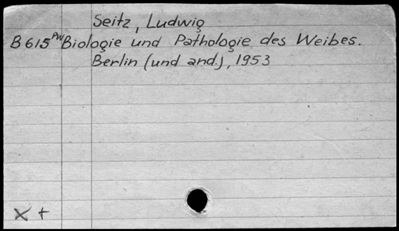 Seitz, Ludwig
B 615 PW Biologie und Pathologie des Weibes.
Berlin (und and.), 1953
X +